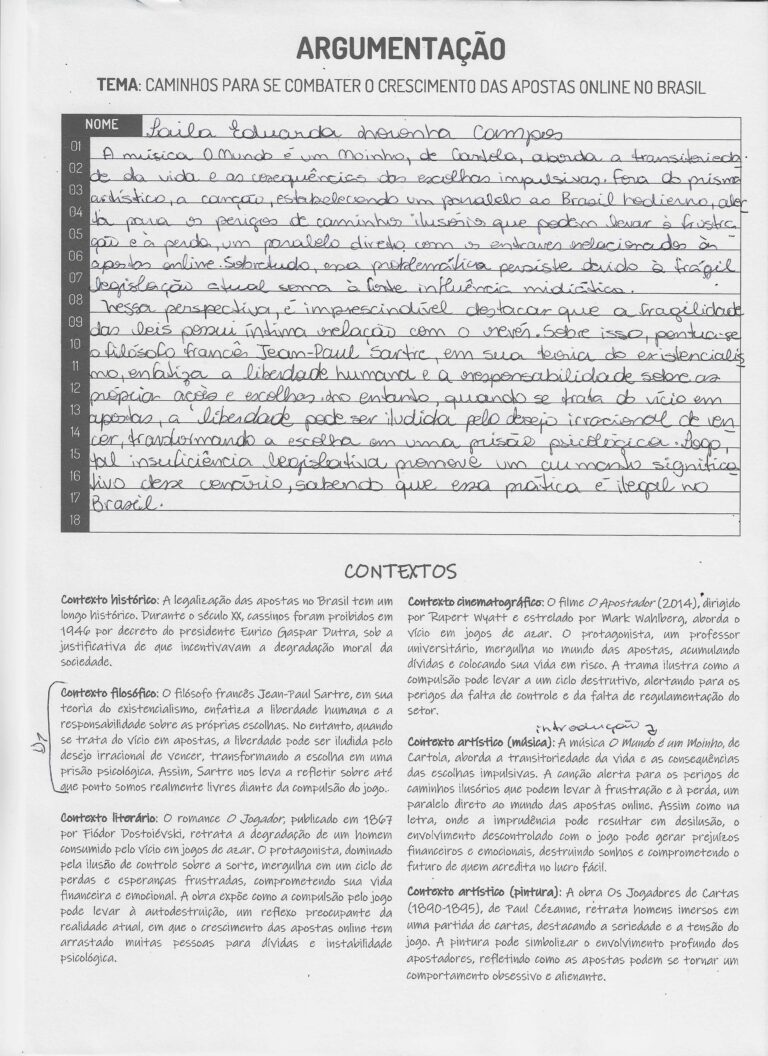 ARGUMENTAÇÃO
TEMA: CAMINHOS PARA SE COMBATER O CRESCIMENTO DAS APOSTAS ONLINE NO BRASIL
NOME Laila Eduarda Noronha Campos
01 A música O Mundo é um Moinho, de Cartola, aborda a transitorieda-
02 de da vida e as cosequências das escolhas impulsivas. Fora do prisma
03 artístico, a canção, estabelecendo um paralelo ao Brasil hodierno, aler-
04 ta para os perigos de caminhos ilusório que podem levar à frustra-
05 ção e à perda, um paralelo direto com os entraves relacionados às
06 apostas online. Sobretudo, essa problemática persiste devido à frágil
07 legislação atual soma à forte influência midiática.
08 Nessa perspectiva, é imprescindível destacar que a fragilidade
09 das leis possui íntima relação com o revés. Sobre isso, pontua-se
10 o filósofo francês Jean-Paul Sartre, em sua teoria do existencialis
11 mo, enfatiza a liberdade humana e a responsabilidade sobre as
12 própriar ações e escolhas. No entanto, quando se trata do vício em
13 apostas, a liberdade pode ser iludida pelo desejo irracional de ven-
14 cer, transformando a escolha em uma prisão psicológica. Logo,
15 tal insuficiência legislativa promove um aumento significa-
16 tivo desse cenário, sabendo que essa prática é ilegal no
17 Brasil.
18
CONTEXTOS
Contexto histórico: A legalização das apostas no Brasil tem um
longo histórico. Durante o século XX, cassinos foram proibidos em
1946 por decreto do presidente Eurico Gaspar Dutra, sob a
justificativa de que incentivavam a degradação moral da
sociedade.
D1
Contexto filosófico: O filósofo francês Jean-Paul Sartre, em sua
teoria do existencialismo, enfatiza a liberdade humana e a
responsabilidade sobre as próprias escolhas. No entanto, quando
se trata do vício em apostas, a liberdade pode ser iludida pelo
desejo irracional de vencer, transformando a escolha em uma
prisão psicológica. Assim, Sartre nos leva a refletir sobre até
que ponto somos realmente livres diante da compulsão do jogo.
Contexto literário: O romance O Jogador, publicado em 1867
por Fiódor Dostoiévski, retrata a degradação de um homem
consumido pelo vício em jogos de azar. O protagonista, dominado
pela ilusão de controle sobre a sorte, mergulha em um ciclo de
perdas e esperanças frustradas, comprometendo sua vida
financeira e emocional. A obra expõe como a compulsão pelo jogo
pode levar à autodestruição, um reflexo preocupante da
realidade atual, em que o crescimento das apostas online tem
arrastado muitas pessoas para dívidas e instabilidade
psicológica.
Contexto cinematográfico: O filme O Apostador (2014), dirigido
por Rupert Wyatt e estrelado por Mark Wahlberg, aborda o
vício em jogos de azar. O protagonista, um professor
universitário, mergulha no mundo das apostas, acumulando
dívidas e colocando sua vida em risco. A trama ilustra como a
compulsão pode levar a um ciclo destrutivo, alertando para os
perigos da falta de controle e da falta de regulamentação do
setor.
introdução
Contexto artístico (música): A música O Mundo é um Moinho, de
Cartola, aborda a transitoriedade da vida e as consequências
das escolhas impulsivas. A canção alerta para os perigos de
caminhos ilusórios que podem levar à frustração e à perda, um
paralelo direto ao mundo das apostas online. Assim como na
letra, onde a imprudência pode resultar em desilusão, o
envolvimento descontrolado com o jogo pode gerar prejuízos
financeiros e emocionais, destruindo sonhos e comprometendo o
futuro de quem acredita no lucro fácil.
Contexto artístico (pintura): A obra Os Jogadores de Cartas
(1890-1895), de Paul Cézanne, retrata homens imersos em
uma partida de cartas, destacando a seriedade e a tensão do
jogo. A pintura pode simbolizar o envolvimento profundo dos
apostadores, refletindo como as apostas podem se tornar um
comportamento obsessivo e alienante.